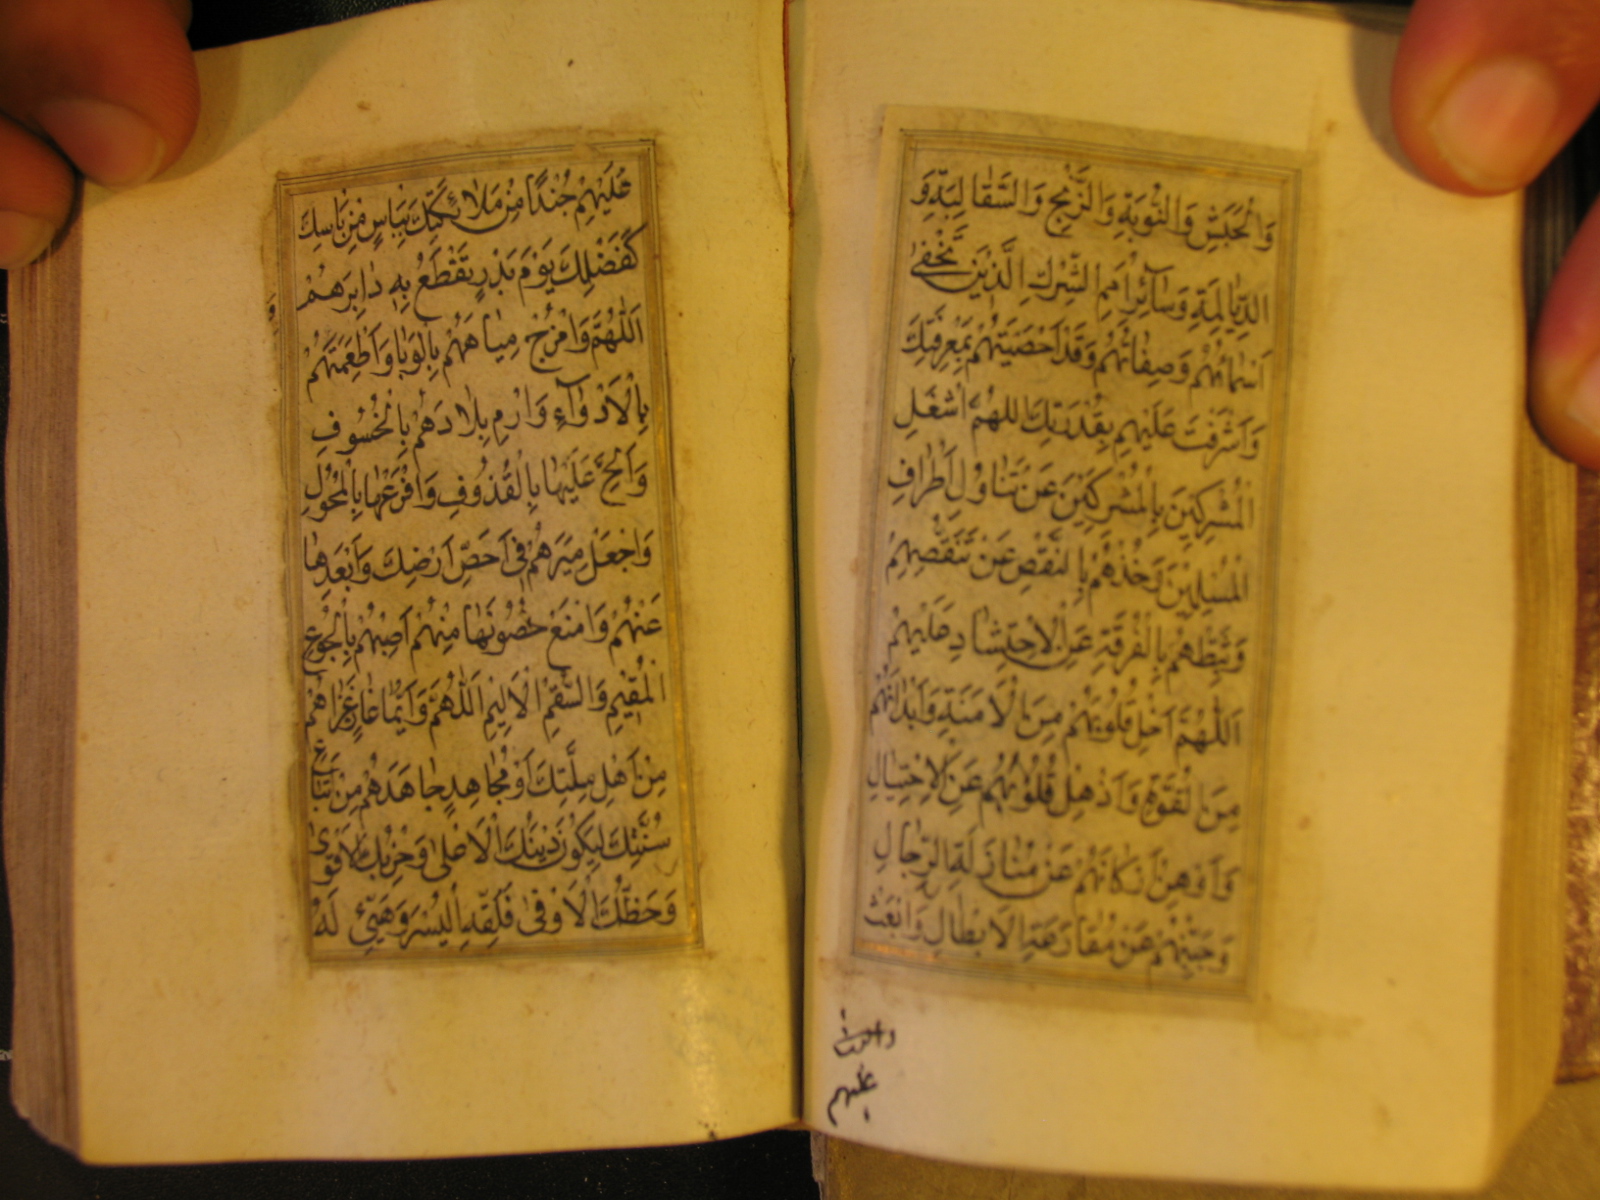 وَالْحَبَشِ وَالنُّوبَةِ وَالزَّنْجِ وَالسَّقَالِبَةِ وَ
الدَّيَالِمَةِ وَسَآئِرِ اُمَمِ الشِّرْكِ الَّذِينَ تَخْفٰى
اَسْمَائُهُمْ وَصِفَاتُهُمْ وَقَدْ اَحْصَيْتَهُمْ بِمَعْرِفَتِكَ
وَاَشْرَفْتَ عَلَيْهِمْ بِقُدْرَتِكَ اللهُمَّ اشْغَلِ
الْمُشْرِكِينَ بِالْمُشْرِكِينَ عَنْ تَنَاوُلِ اَطْرَافِ
الْمُسْلِمِينَ وَخُذْهُمْ بِالنَّقْصِ عَنْ تَنَقُّصِهِمْ
وَثَبِّطْهُمْ بِالْفُرْقَةِ عَنِ الْاِحْتِشَادِ عَلَيْهِمْ
اَللّٰهُمَّ اَخْلِ قُلُوبَهُمْ مِنَ الْاَمَنَةِ وَاَبْدَانَهُمْ
مِنَ الْقُوَّةِ وَاَذْهِلْ قُلُوبَهُمْ عَنِ الْاِحْتِيَالِ
وَاَوْهِنْ اَرْكَانَهُمْ عَنْ مُنَازَلَةِ الرِّجَالِ
وَجَبِّنْهُمْ عَنْ مُقَارَعَةِ الْاَبْطَالِ وَابْعَثْ
وابعث
عليهم
عَلَيْهِمْ جُنْدًا مِنْ مَلَائِكَتِكَ بِبَاْسٍ مِنْ بَاْسِكَ
كَفَضْلِكَ يَوْمَ بَدْرٍ تَقْطَعُ بِهِ دَابِرَهُمْ
اَللّٰهُمَّ وَامْزُجْ مِيَاهَهُمْ بِالْوَبَاءِ وَاَطْعِمَتَهُمْ
بِالْاَدْوَآءِ وَارْمِ بِلَادَهُمْ بِالْخُسُوفِ
وَاَلِحَّ عَلَيْهَا بِالْقُذُوفِ وَافْرَعْهَا بِالْمُحُولِ
وَاجْعَلْ مِيَرَهُمْ فِى اَحَصِّ اَرْضِكَ وَاَبْعَدِهَا
عَنْهُمْ وَامْنَعْ حُصُونَهَا مِنْهُمْ اَصِبْهُمْ بِالْجُوعِ
الْمُقِيمِ وَالسُّقْمِ الْاَلِيمِ اَللّٰهُمَّ وَاَيُّمَا غَازٍ غَزَاهُمْ
مِنْ اَهْلِ مِلَّتِكَ اَوْ مُجَاهِدٍ جَاهَدَهُمْ مِنْ اَتْبَاعِ
سُنَّتِكَ لِيَكُونَ دِينُكَ الْاَعْلٰى وَحِزْبُكَ الْاَقْوٰى
وَحَظُّكَ الْاَوْفٰى فَلَقِّهِ الْيُسْرَ وَهَيِّئْ لَهُ